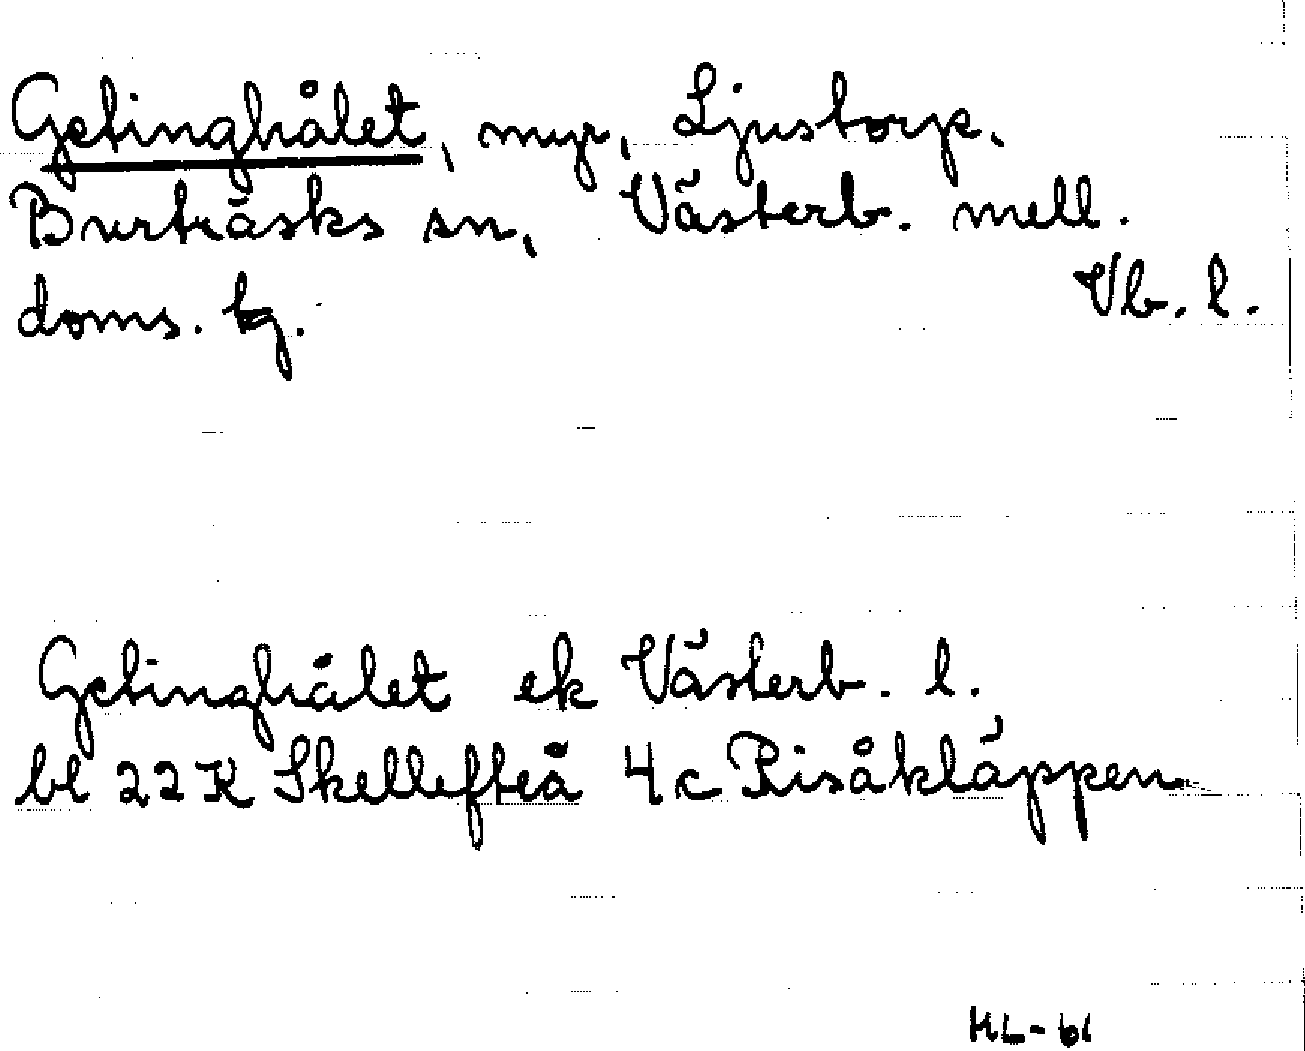 Getinghålet, myr, Ljustorp.
Burträsks sn, Västerb. mell.
doms. tg. Vb. l.
Getinghålet ek Västerb. l.
bl 22K Skellefteå 4c Risåkläppen
HL-61